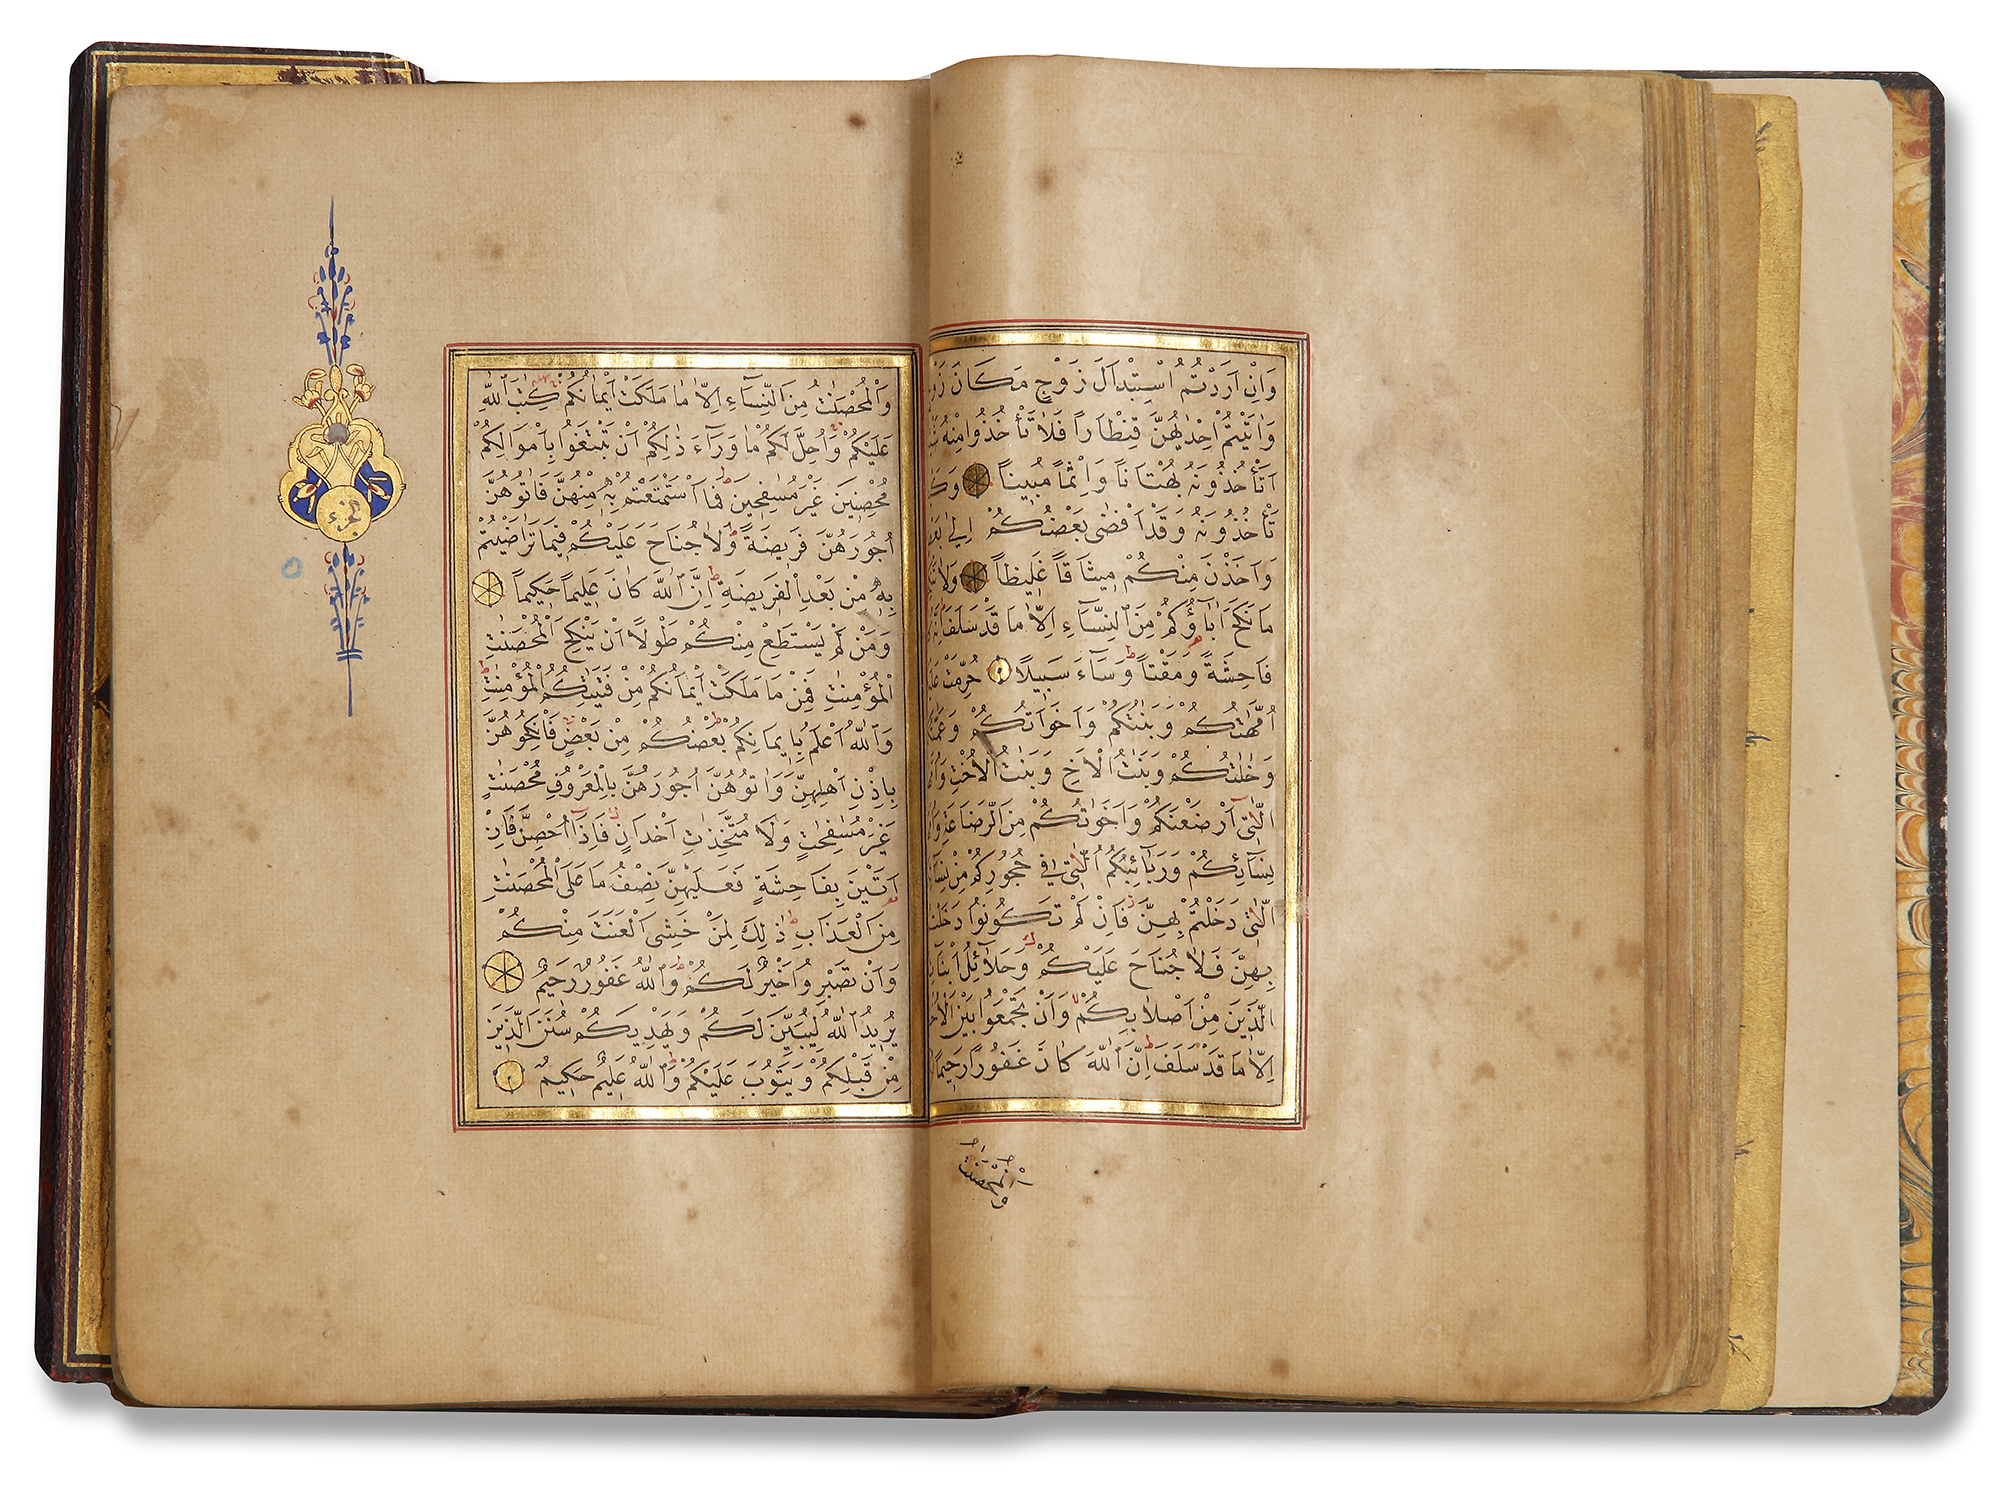 وَاِنْ اَرَدْتُمُ اسْتِبْدَالَ زَوْجٍ مَكَانَ زَوْجٍ
وَاٰتَيْتُمْ اِحْدٰيهُنَّ قِنْطَاراً فَلَا تَأْخُذُوا مِنْهُ
اَتَأْخُذُونَهُ بُهْتَاناً وَاِثْماً مُبِيناً وَكَيْفَ
تَأْخُذُونَهُ وَقَدْ اَفْضٰى بَعْضُكُمْ اِلٰى بَعْضٍ
وَاَخَذْنَ مِنْكُمْ مِيثَاقاً غَلِيظاً وَلَا
مَا نَكَحَ اٰبَاؤُكُمْ مِنَ النِّسَاءِ اِلَّا مَا قَدْ سَلَفَ اِنَّهُ
فَاحِشَةً وَمَقْتاً وَسَاءَ سَبِيلاً حُرِّمَتْ
اُمَّهَاتُكُمْ وَبَنَاتُكُمْ وَاَخَوَاتُكُمْ
وَخَالَاتُكُمْ وَبَنَاتُ الْاَخِ وَبَنَاتُ الْاُخْتِ
الّٰتِى اَرْضَعْنَكُمْ وَاَخَوَاتُكُمْ مِنَ الرَّضَاعَةِ
نِسَائِكُمْ وَرَبَائِبُكُمُ الّٰتِى فِى حُجُورِكُمْ مِنْ
الّٰتِى دَخَلْتُمْ بِهِنَّ فَاِنْ لَمْ تَكُونُوا دَخَلْتُمْ
بِهِنَّ فَلَا جُنَاحَ عَلَيْكُمْ وَحَلَائِلُ
الَّذِينَ مِنْ اَصْلَابِكُمْ وَاَنْ تَجْمَعُوا بَيْنَ
اِلَّا مَا قَدْ سَلَفَ اِنَّ اللّٰهَ كَانَ غَفُوراً رَحِيماً
وَالْمُحْصَنٰتُ
وَالْمُحْصَنٰتُ مِنَ النِّسَاءِ اِلَّا مَا مَلَكَتْ اَيْمَانُكُمْ كِتٰبَ اللّٰهِ
عَلَيْكُمْ وَاُحِلَّ لَكُمْ مَا وَرَاءَ ذٰلِكُمْ اَنْ تَبْتَغُوا بِاَمْوَالِكُمْ
مُحْصِنِينَ غَيْرَ مُسٰفِحِينَ فَمَا اسْتَمْتَعْتُمْ بِهٖ مِنْهُنَّ فَاٰتُوهُنَّ
اُجُورَهُنَّ فَرِيضَةً وَلَا جُنَاحَ عَلَيْكُمْ فِيمَا تَرَاضَيْتُمْ
بِهٖ مِنْ بَعْدِ الْفَرِيضَةِ اِنَّ اللّٰهَ كَانَ عَلِيماً حَكِيماً
وَمَنْ لَمْ يَسْتَطِعْ مِنْكُمْ طَوْلاً اَنْ يَنْكِحَ الْمُحْصَنٰتِ
الْمُؤْمِنٰتِ فَمِنْ مَا مَلَكَتْ اَيْمَانُكُمْ مِنْ فَتَيٰتِكُمُ الْمُؤْمِنٰتِ
وَاللّٰهُ اَعْلَمُ بِاِيمَانِكُمْ بَعْضُكُمْ مِنْ بَعْضٍ فَانْكِحُوهُنَّ
بِاِذْنِ اَهْلِهِنَّ وَاٰتُوهُنَّ اُجُورَهُنَّ بِالْمَعْرُوفِ مُحْصَنٰتٍ
غَيْرَ مُسٰفِحٰتٍ وَلَا مُتَّخِذٰتِ اَخْدَانٍ فَاِذَا اُحْصِنَّ فَاِنْ
اَتَيْنَ بِفَاحِشَةٍ فَعَلَيْهِنَّ نِصْفُ مَا عَلَى الْمُحْصَنٰتِ
مِنَ الْعَذَابِ ذٰلِكَ لِمَنْ خَشِىَ الْعَنَتَ مِنْكُمْ
وَاَنْ تَصْبِرُوا خَيْرٌ لَكُمْ وَاللّٰهُ غَفُورٌ رَحِيمٌ
يُرِيدُ اللّٰهُ لِيُبَيِّنَ لَكُمْ وَيَهْدِيَكُمْ سُنَنَ الَّذِينَ
مِنْ قَبْلِكُمْ وَيَتُوبَ عَلَيْكُمْ وَاللّٰهُ عَلِيمٌ حَكِيمٌ